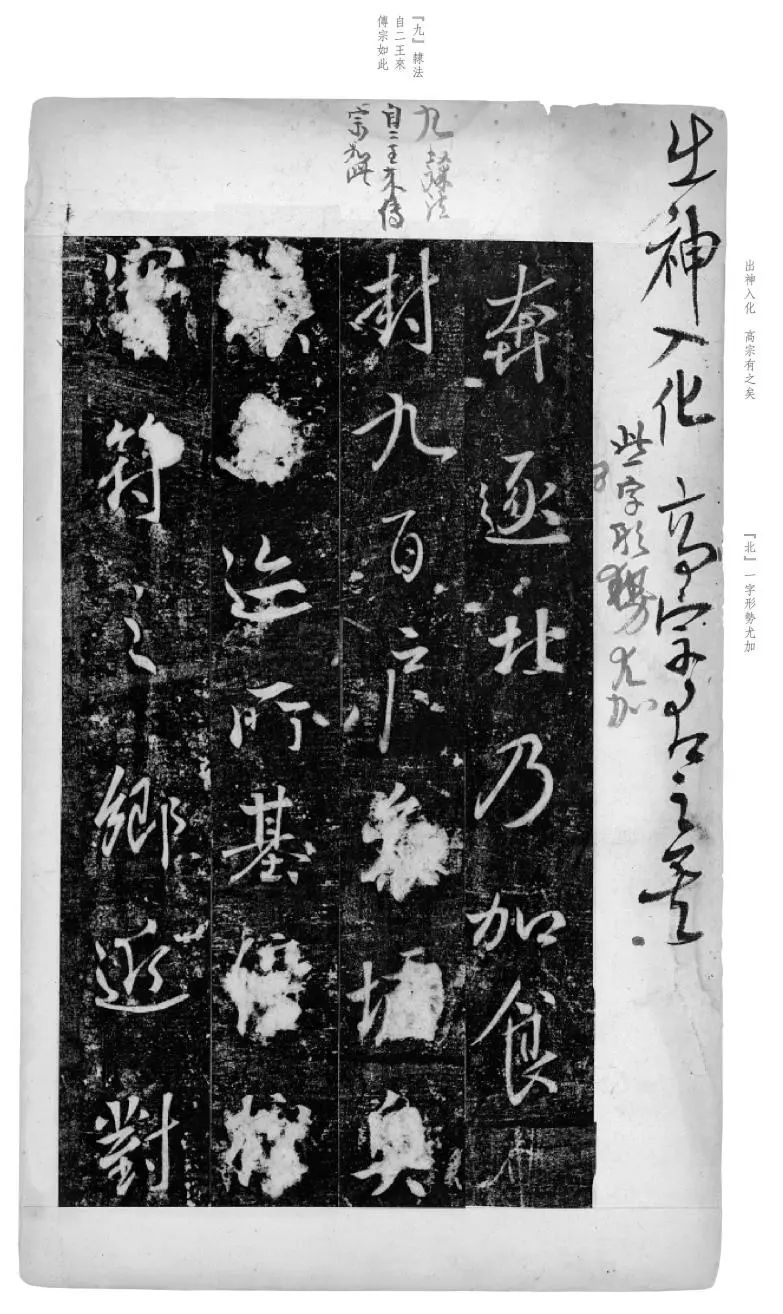 『九』隸法
自二王來
傳宗如此
出神入化 高宗有之矣
『北』一字形勢尤加
出神入化高宗有之矣
字形勢尤加
九 隸法
自二王來傳
宗如此
奔逐北乃加食
封九百戶奧
所基
符之鄉對